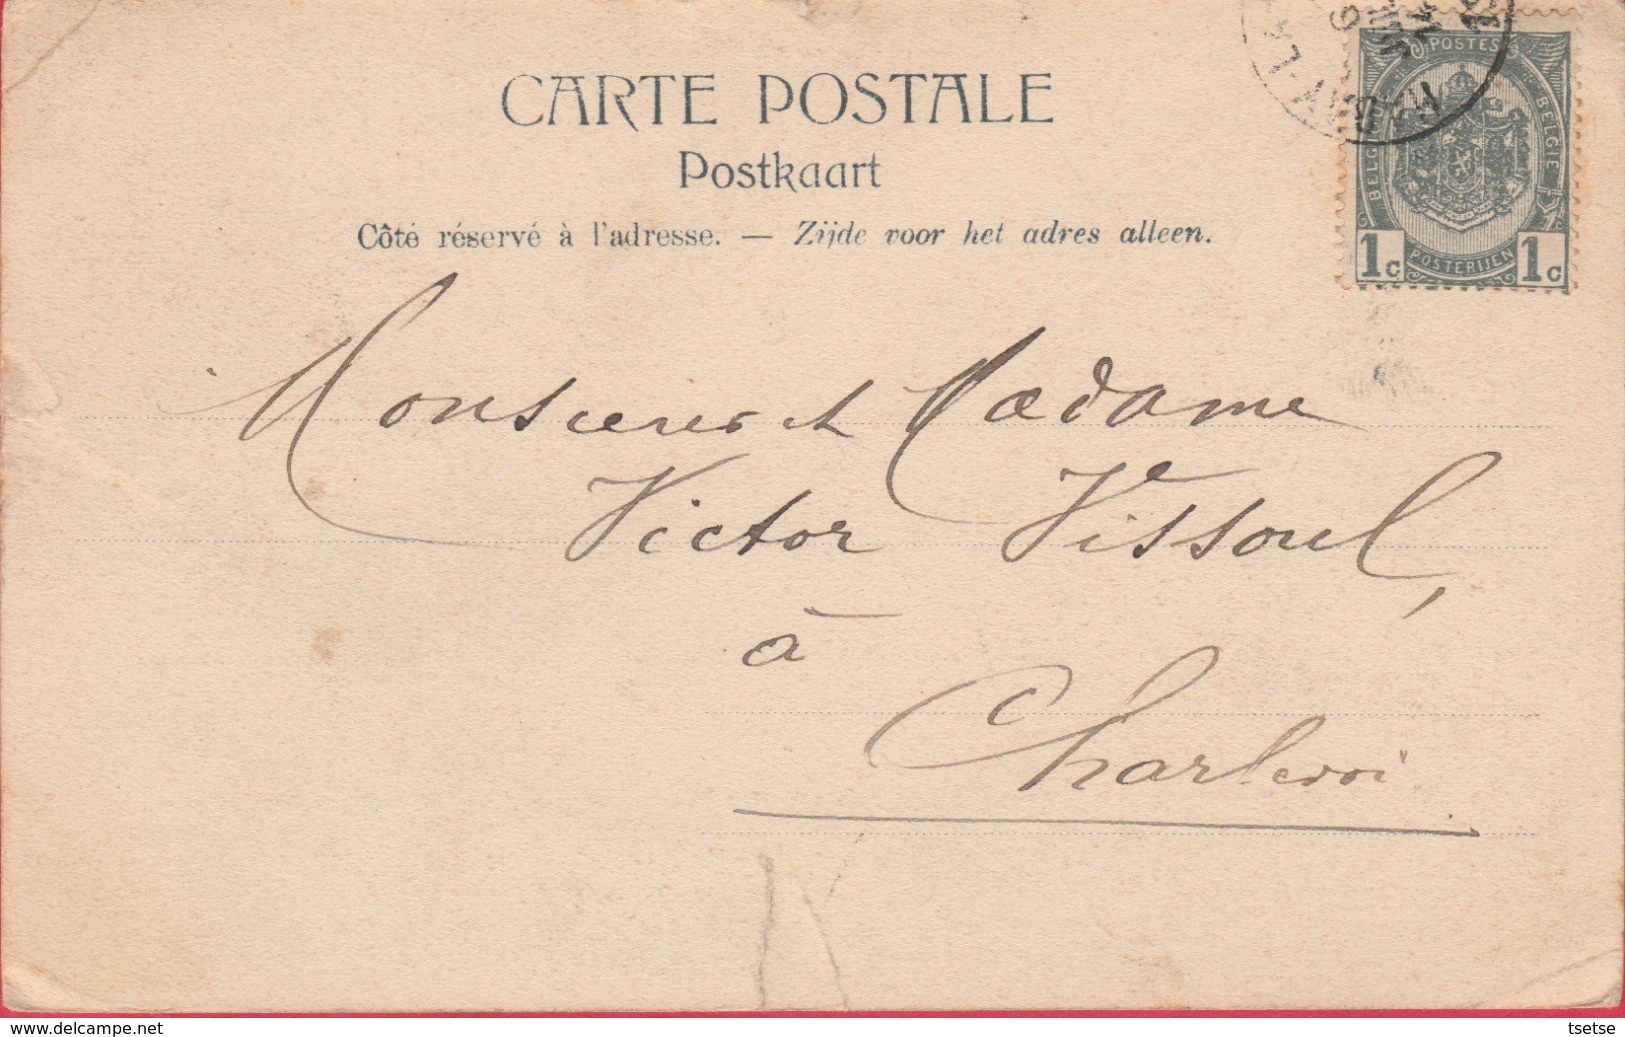 CARTE POSTALE
Postkaart
Côté réservé à l'adresse. — Zijde voor het adres alleen.
POSTES
BELGIE
POSTERIJEN
1c 1c
Monsieur et Madame
Victor Vissoul,
à
Charleroi
delcampe.net
tsetse